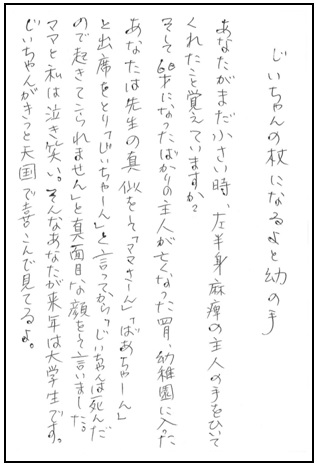 じいちゃんの杖になるよと幼の手
あなたがまだ小さい時、左半身麻痺の主人の手をひいて
くれたこと覚えていますか？
そして60才になったばかりの主人が亡くなった四月、幼稚園に入った
あなたは先生の真似をして「ママさーん」「ばあちゃーん」
と出席をとり「じいちゃーん」と言ってから「じいちゃんは死んだ
ので起きてこられません」と真面目な顔をして言いました。
ママと私は泣き笑い。そんなあなたが来年は大学生です。
じいちゃんがきっと天国で喜こんで見てるよ。